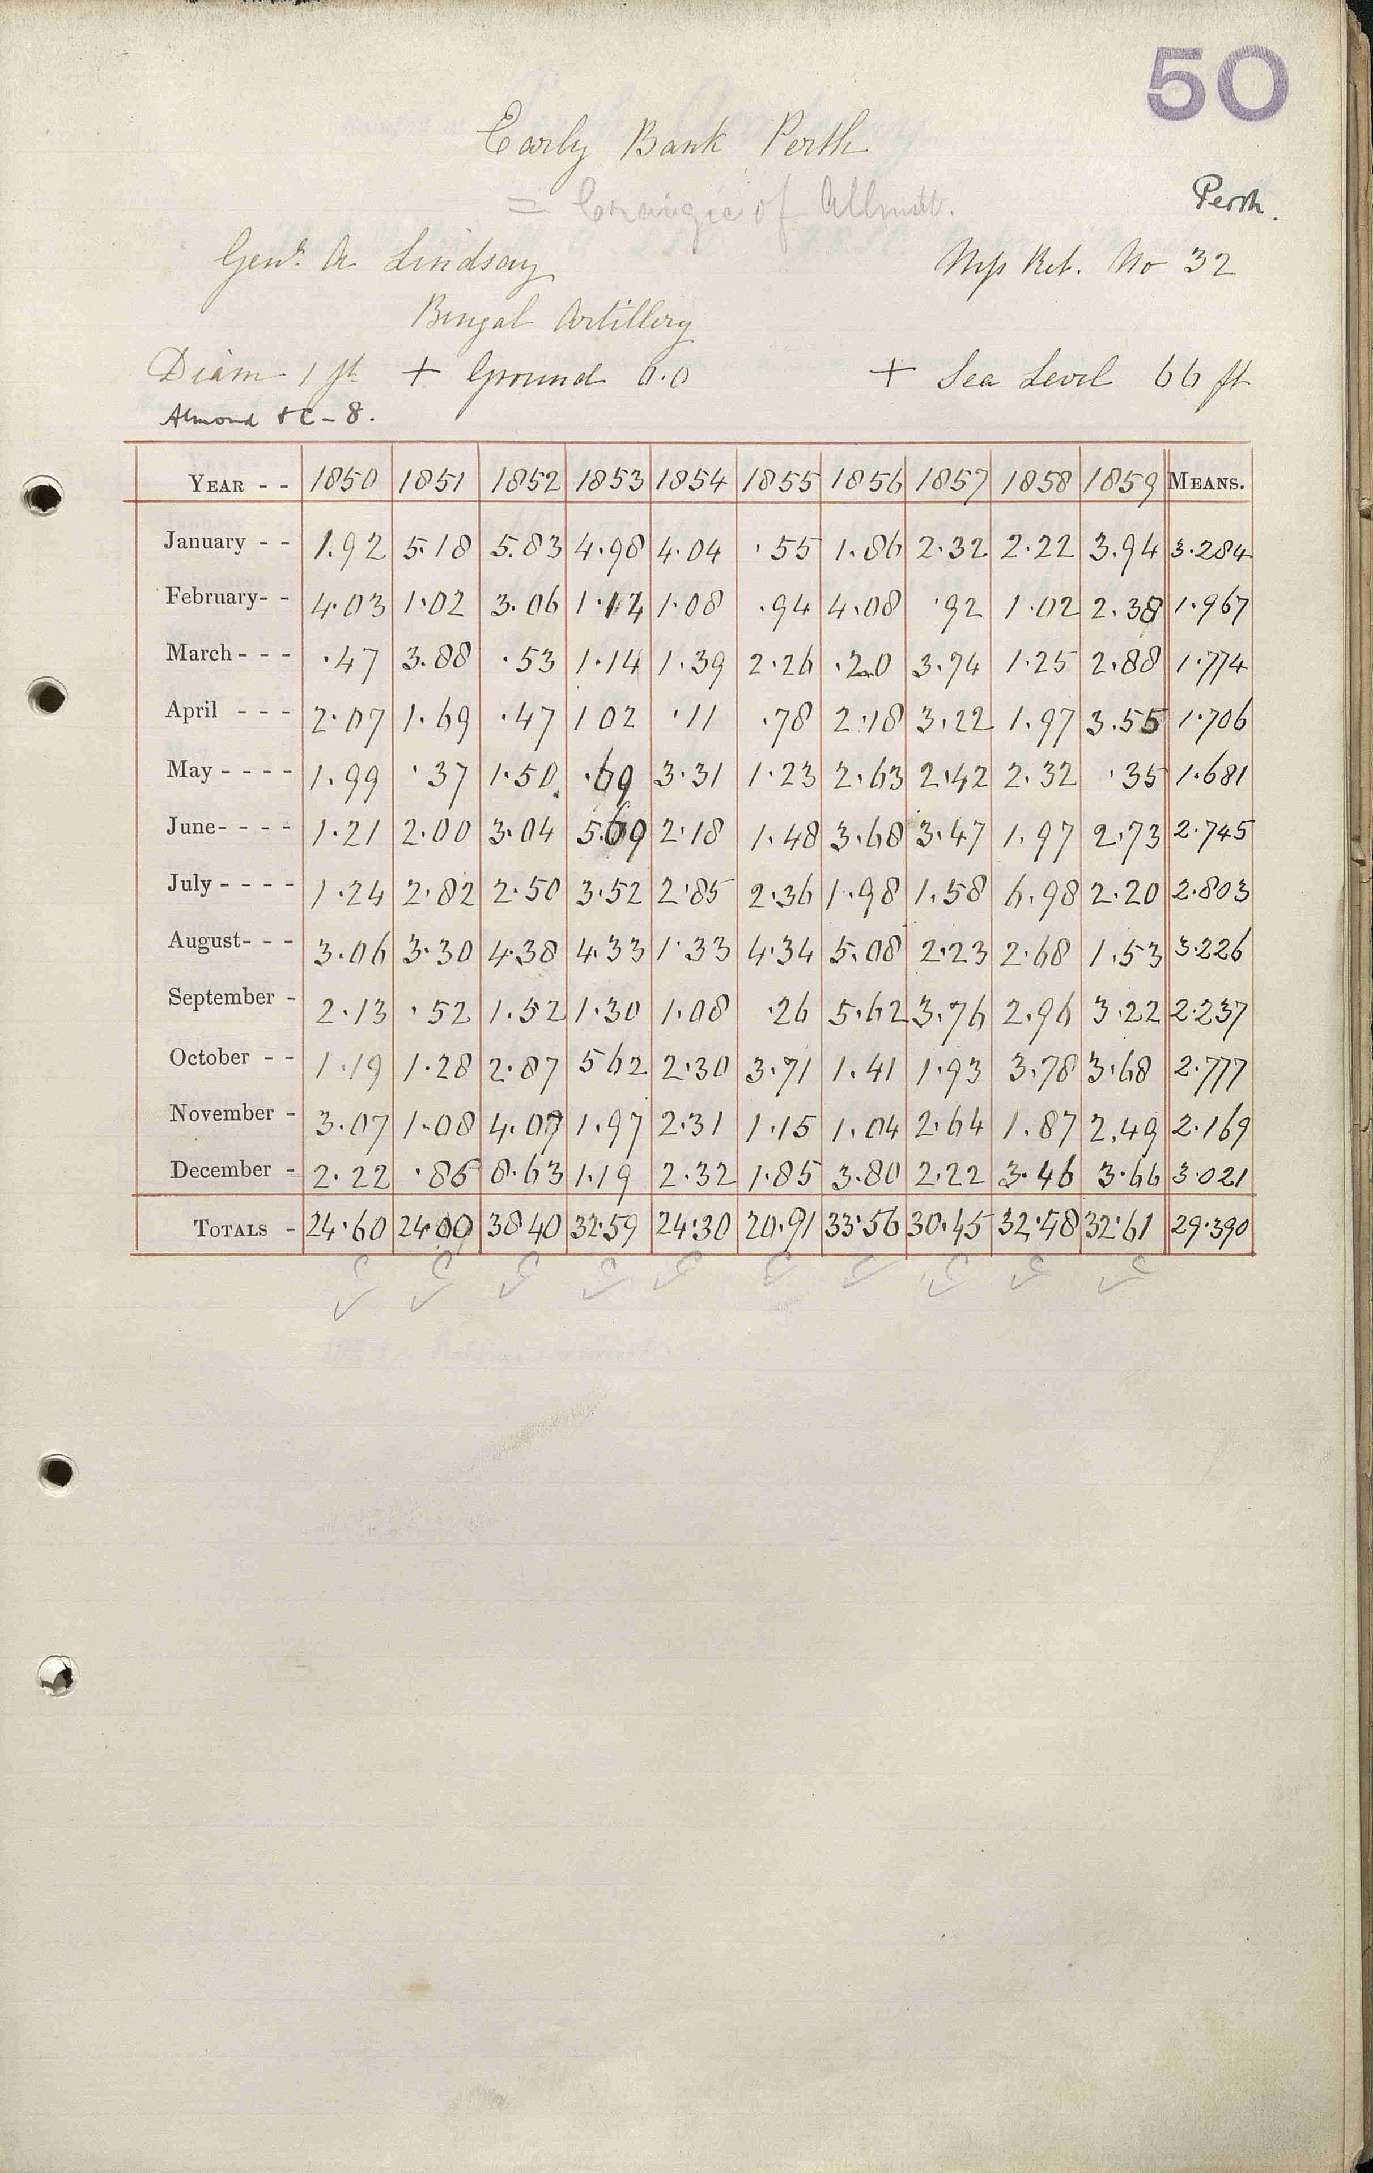 50
Early Bank Perth
= Craigie of Allmatt.
Perth.
Genl. A Lindsay
Mps Ret. No 32
Bengal Artillery
Diam 1 ft + Ground 0.0 + Sea Level 66 ft
Almond & C - 8.
YEAR - - 1850 1851 1852 1853 1854 1855 1856 1857 1858 1859 MEANS.
January - - 1.92 5.18 5.83 4.98 4.04 .55 1.86 2.32 2.22 3.94 3.284
February - - 4.03 1.02 3.06 1.14 1.08 .94 4.08 .92 1.02 2.38 1.967
March - - - .47 3.88 .53 1.14 1.39 2.26 .20 3.74 1.25 2.88 1.774
April - - - 2.07 1.69 .47 1 02 .11 .78 2.18 3.22 1.97 3.55 1.706
May - - - - 1.99 .37 1.50 .69 3.31 1.23 2.63 2.42 2.32 .35 1.681
June - - - - 1.21 2.00 3.04 5.69 2.18 1.48 3.68 3.47 1.97 2.73 2.745
July - - - - 1.24 2.82 2.50 3.52 2.85 2.36 1.98 1.58 6.98 2.20 2.803
August - - - 3.06 3.30 4.38 4.33 1.33 4.34 5.08 2.23 2.68 1.53 3.226
September - 2.13 .52 1.52 1.30 1.08 .26 5.62 3.76 2.96 3.22 2.237
October - - 1.19 1.28 2.87 5 62 2.30 3.71 1.41 1.93 3.78 3.68 2.777
November - 3.07 1.08 4.07 1.97 2.31 1.15 1.04 2.64 1.87 2.49 2.169
December - 2.22 .86 8.63 1.19 2.32 1.85 3.80 2.22 3.46 3.66 3.021
TOTALS - 24.60 24.00 38 40 32.59 24.30 20.91 33.56 30.45 32.48 32.61 29.390